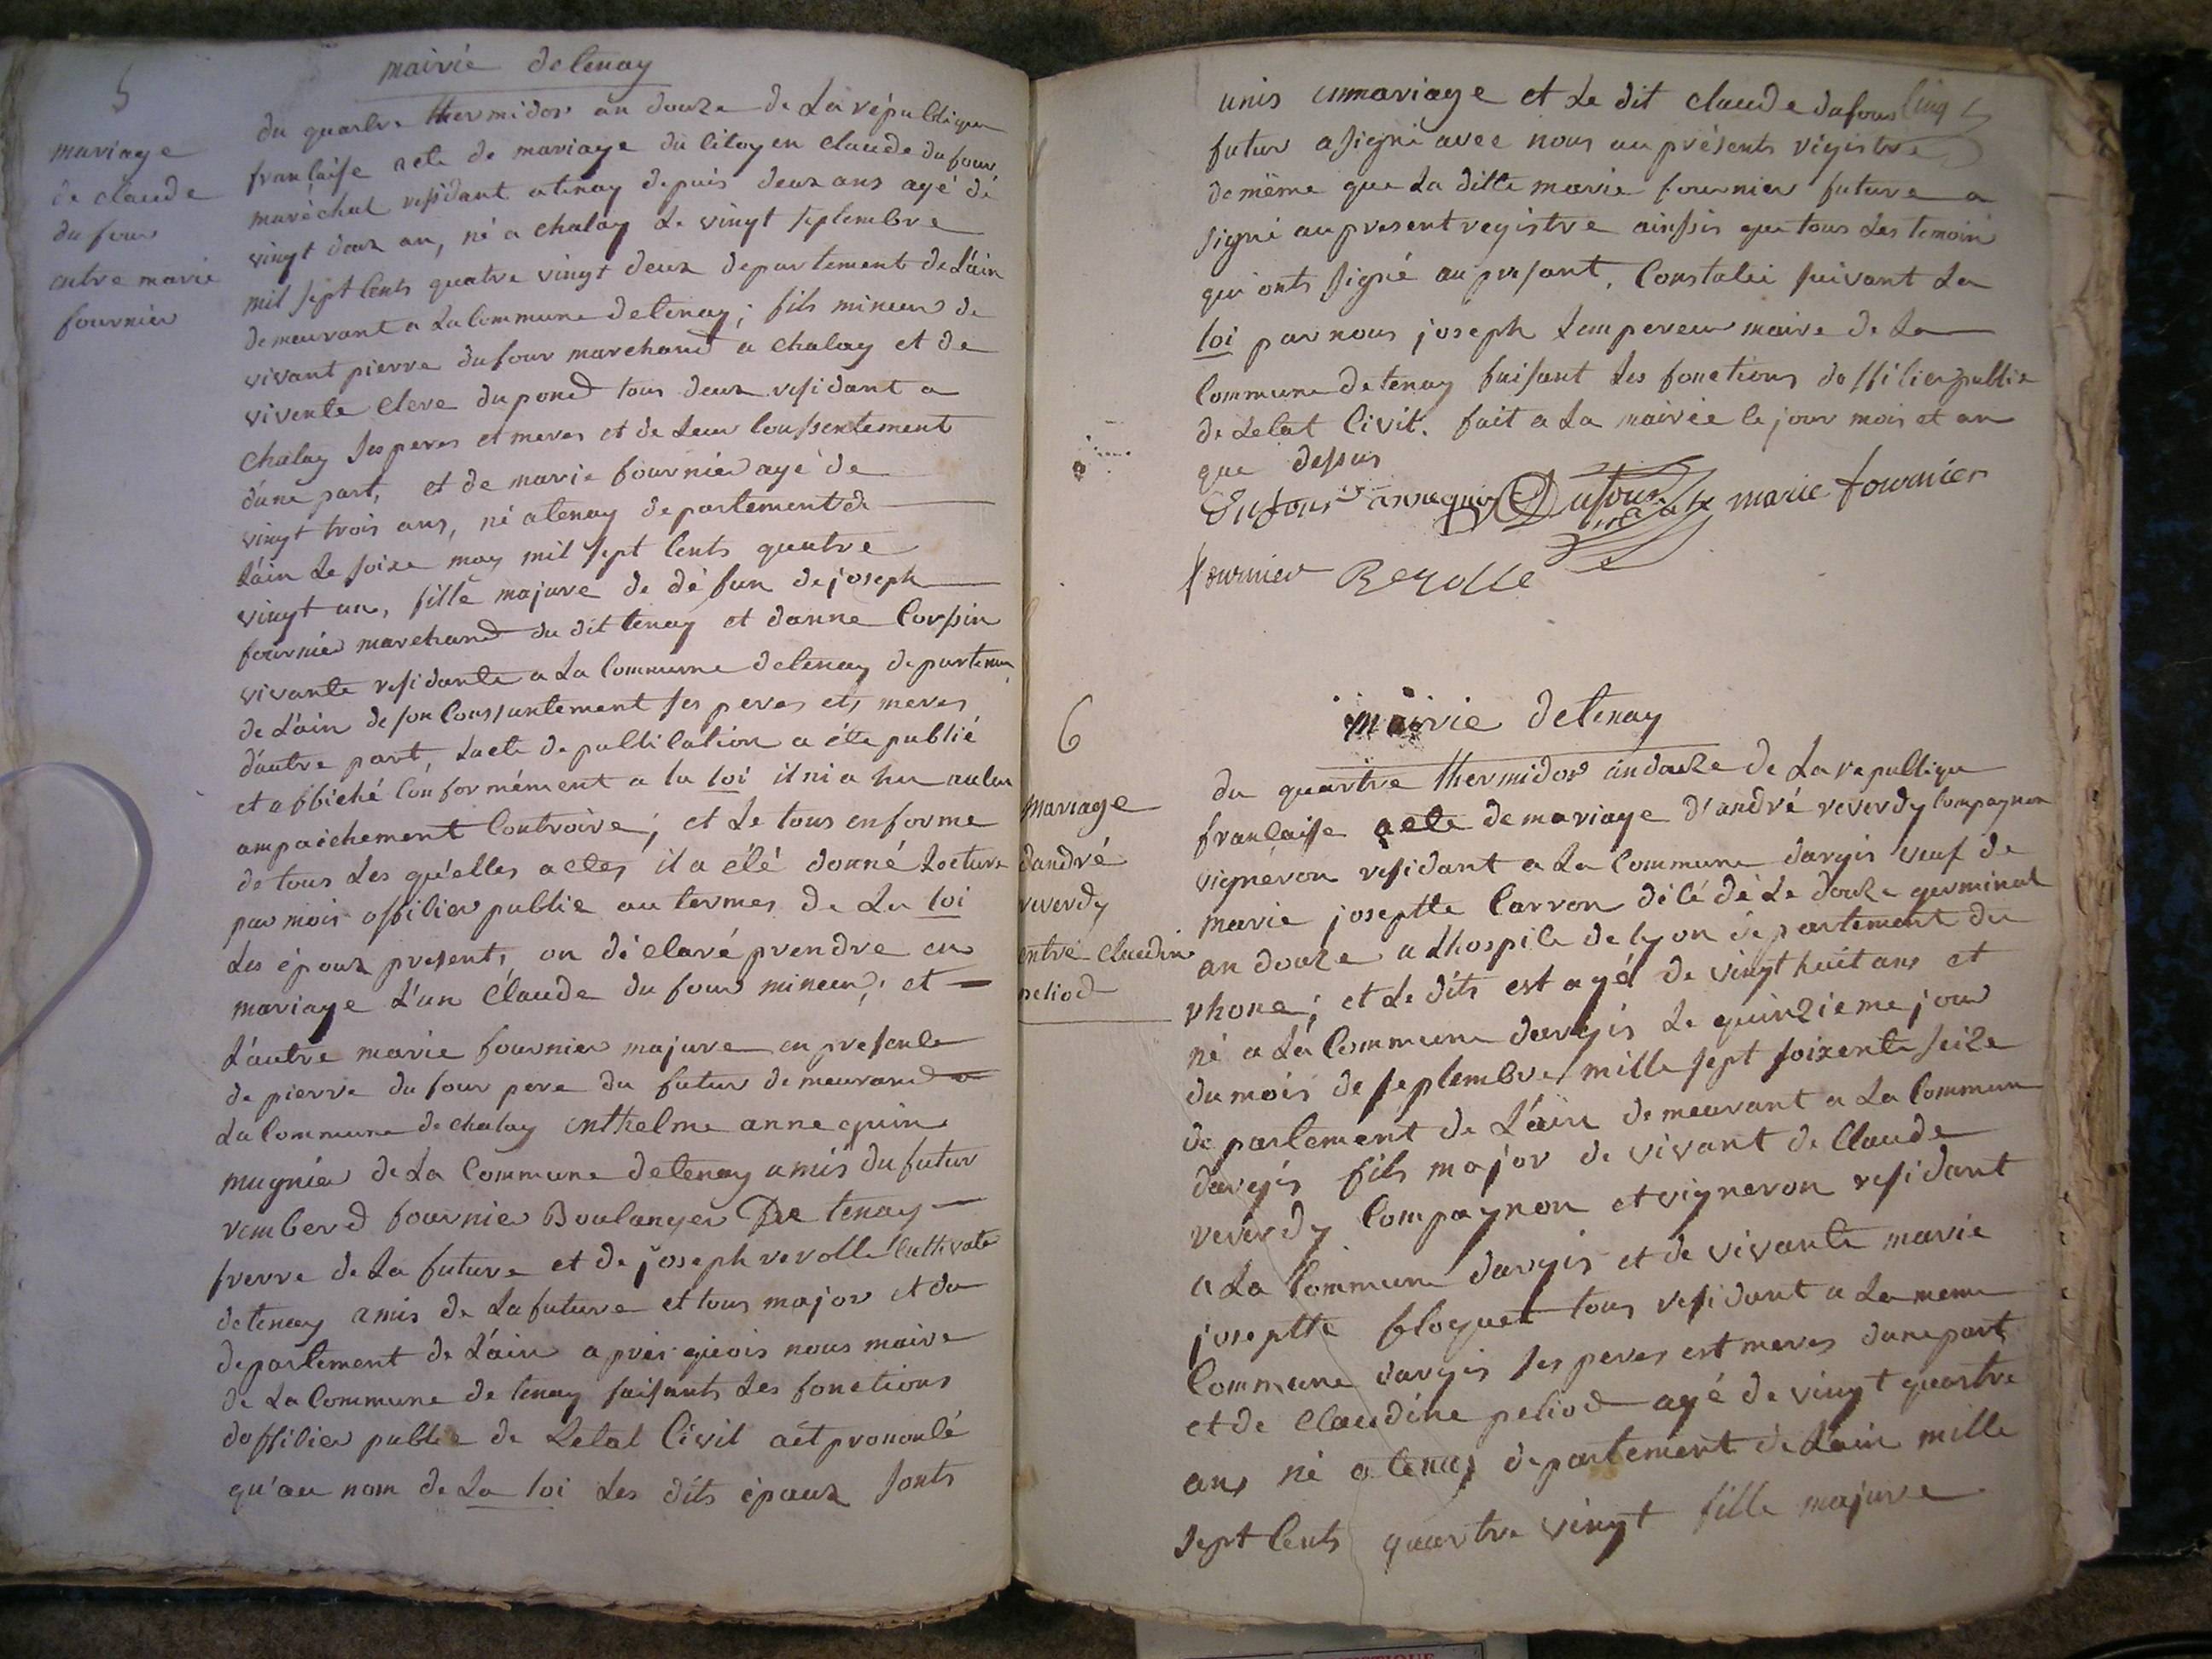 5
mairie detenay
mariage
de claude
dufour
entre marie
fournier
du quartre thermidor an douze de La république
francaise acte de mariage du citoyen claude dufour
maréchal residant atenay depuis deux ans agé de
vingt deux an, né a chalay Le vingt septembre
mil sept cents quatre vingt deux departement de L'ain
demeurant a La commune detenay; fils mineur de
vivant pierre dufour marchand a chalay et de
vivente cleve dupond tous deux residant a
chalay ses peres et meres et de Leur Conssentement
d'une part, et de marie fournier agé de
vingt trois ans, né atenay departement de
L'ain Le seize may mil sept cents quatre
vingt un, fille majure de défun de joseph
fournier marchand du dit tenay et danne Corssin
vivante residante a La Commune detenay departemen
de L'ain de son Conssantement ses peres et meres
d'autre part, Lacte de publication a éte publié
et affiché Conformément a la loi il ni a hu aucun
ampaichement Controire; et Le tous en forme
de tous Les qu'elles actes il a été donné Lecture
par mois officier public au termes de La loi
Les époux present, on déclaré prendre en
mariage L'un Claude du four mineur; et
L'autre marie fournier majure en presence
de pierre du four pere du futur demeurand a
La Commune de chalay enthelme annequin
mugnier de La Commune detenay amis du futur
remberd fournier Boulanger De tenay
frerre de La future et de joseph revolle Cultivate
detenay amis de La future et tous major et du
departement de L'ain après quois nous maire
de La Commune de tenay faisants Les fonctions
dofficier public de Letat Civil aët prononcé
qu'au nom de La loi Les dits époux sonts
unis enmariage et Le dit claude dufour Cinq 5
futur a signé avec nous au présents registre
demême que La ditte marie fournier future a
signé au present registre ainssis que tous Les temoin
qui onts signé au presant, Constatei suivant La
loi par nous joseph Lempereur maire de La
Commune detenay faisant Les fonctions dofficier public
de Letat Civil. fait a La mairie le jour mois et an
que dessus
Dufour annequin Dufour marie fournier
fournier Revolle
6
mairie detenay
Mariage
dandré
reverdy
entre claudine
peliod
du quartre thermidor an douze de La republique
francaisse acte de mariage d'andré reverdy Compagnon
vigneron residant a La Commune dargis veuf de
marie josepte Carron décédé Le douze germinal
an douze a Lhospice de lyon departement du
rhone; et Le dits est agé de vingt huit ans et
né a La Commune dargis Le quinzieme jour
du mois de septembre mille sept soixente seize
departement de L'ain demeurant a La Commune
dargis fils major de vivant de Claude
reverdy Compagnon et vigneron residant
a La Commune dargis et de vivante marie
josepte floquet tous residant a La meme
Commune dargis ses peres est meres dune part
et de Claudine peliod agé de vingt quartre
ans né a tenay departement de L'ain mille
sept Cents quartre vingt fille majure